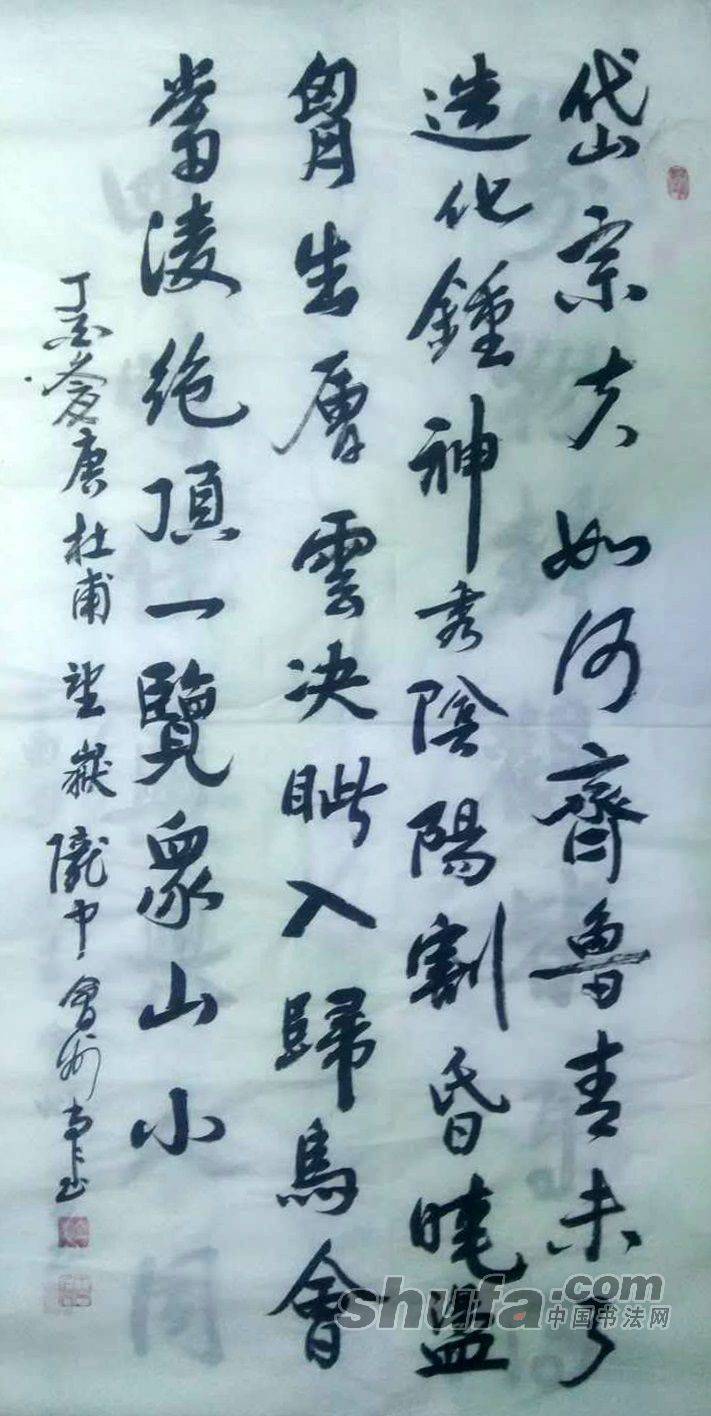 岱宗夫如何齊魯青未了
造化鍾神秀陰陽割昏曉盪
胷生層雲决眦入歸鳥會
當淩絶頂一覽衆山小
丁酉夏唐杜甫望嶽隴中會州
shufa.com
中国书法网